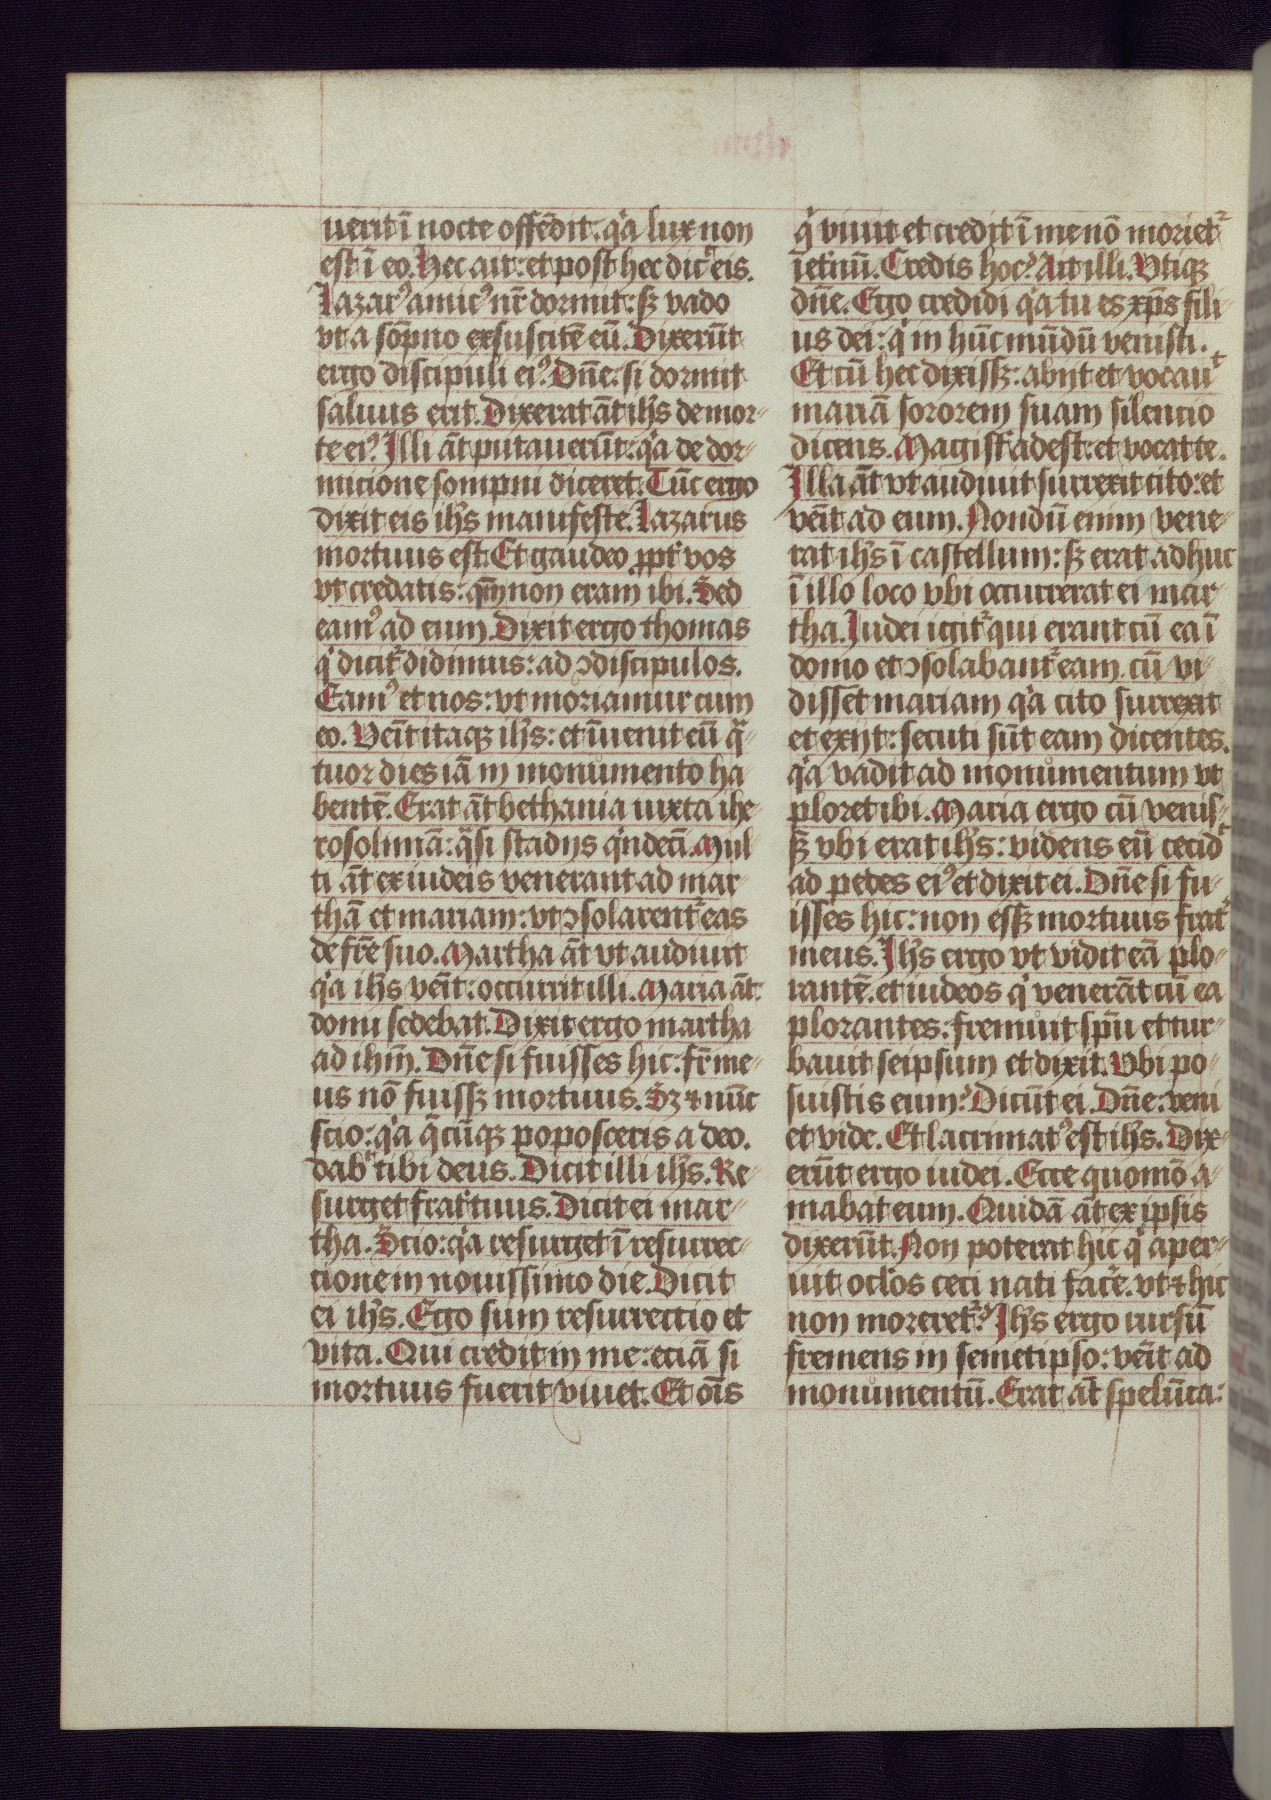 uerit ī nocte offēdit. qͥa lux non
est ī eo. Hec ait: et post hec dic̄ eis.
Lazarꝰ amicꝰ nr̄ dormit: sꝫ vado
vt a sōpno exsuscitē eū. Dixerūt
ergo discipuli eiꝰ. Dn̄e: si dormit
saluus erit. Dixerat āt ih̄s de mor-
te eiꝰ. Illi āt putauerūt: qͥa de dor-
micione sompni diceret. Tūc ergo
dixit eis ih̄s manifeste. Lazarus
mortuus est. Et gaudeo ꝓpt̄ vos
vt credatis: qm̄ non eram ibi. Sed
eamꝰ ad eum. Dixit ergo thomas
qͥ dicit᷑ didimus: ad ꝯdiscipulos.
Eamꝰ et nos: vt moriamur cum
eo. Ven̄it itaqꝫ ih̄s: et īuenit eū qͣ-
tuor dies iā in monumento ha-
bentē. Erat āt bethania iuxta ihe-
rosolimā: qͣsi stadijs qͥndecī. Mul-
ti āt ex iudeis venerant ad mar-
thā et mariam: vt ꝯsolarent᷑ eas
de fr̄e suo. Martha āt vt audiuit
qͥa ih̄s ven̄it: occurrit illi. Maria āt
domi sedebat. Dixit ergo martha
ad ihm̄. Dn̄e si fuisses hic: fr̄ me-
us nō fuissꝫ mortuus. Sꝫ ⁊ nūc
scio: qͥa q̄cūqꝫ poposceris a deo.
dabᷣt tibi deus. Dicit illi ih̄s. Re-
surget frat̄ tuus. Dicit ei mar-
tha. Scio: qͥa resurget ī resurrec-
tione in nouissimo die. Dicit
ei ih̄s. Ego sum resurrectio et
vita. Qui credit in me: eciā si
mortuus fuerit viuet. Et oīs
qͥ viuit et credit ī me nō moriet᷑
īet̄nū. Credis hoc? Ait illi. Vtiqꝫ
dn̄e. Ego credidi qͥa tu es xp̄s fili-
us dei: qͥ in hūc mūdū venisti.
Et cū hec dixissꝫ: abijt et vocauᵗ
mariā sororem suam silencio
dicens. Magist̄ adest: et vocat te.
Illa āt vt audiuit surrexit cito: et
ven̄it ad eum. Nondū enim vene-
rat ih̄s ī castellum: sꝫ erat adhuc
ī illo loco vbi occurrerat ei mar-
tha. Iudei igit᷑ qui erant cū ea ī
domo et ꝯsolabant᷑ eam. cū vi-
dissēt mariam qͥa cito surrexit
et exijt: secuti sūt eam dicentes.
qͥa vadit ad monumentum vt
ploret ibi. Maria ergo cū venis-
sꝫ vbi erat ih̄s: videns eū cecidᵗ
ad pedes eiꝰ et dixit ei. Dn̄e si fu-
isses hic: non essꝫ mortuus frat᷑
meus. Ih̄s ergo vt vidit eā plo-
rantē. et iudeos qͥ venerāt cū ea
plorantes: fremuit spū et tur-
bauit seipsum et dixit. Vbi po-
suistis eum? Dicūt ei. Dn̄e: veni
et vide. Et lacrimatꝰ est ih̄s. Dix-
erūt ergo iudei. Ecce quomō a-
mabat eum. Quidā āt ex ipsis
dixerūt. Non poterat hic qͥ aper-
uit oclo̓s ceci nati facͤe. vt ⁊ hic
non moreret᷑? Ih̄s ergo rursū
fremens in semetipso: ven̄it ad
monumentū. Erat āt spelūca: